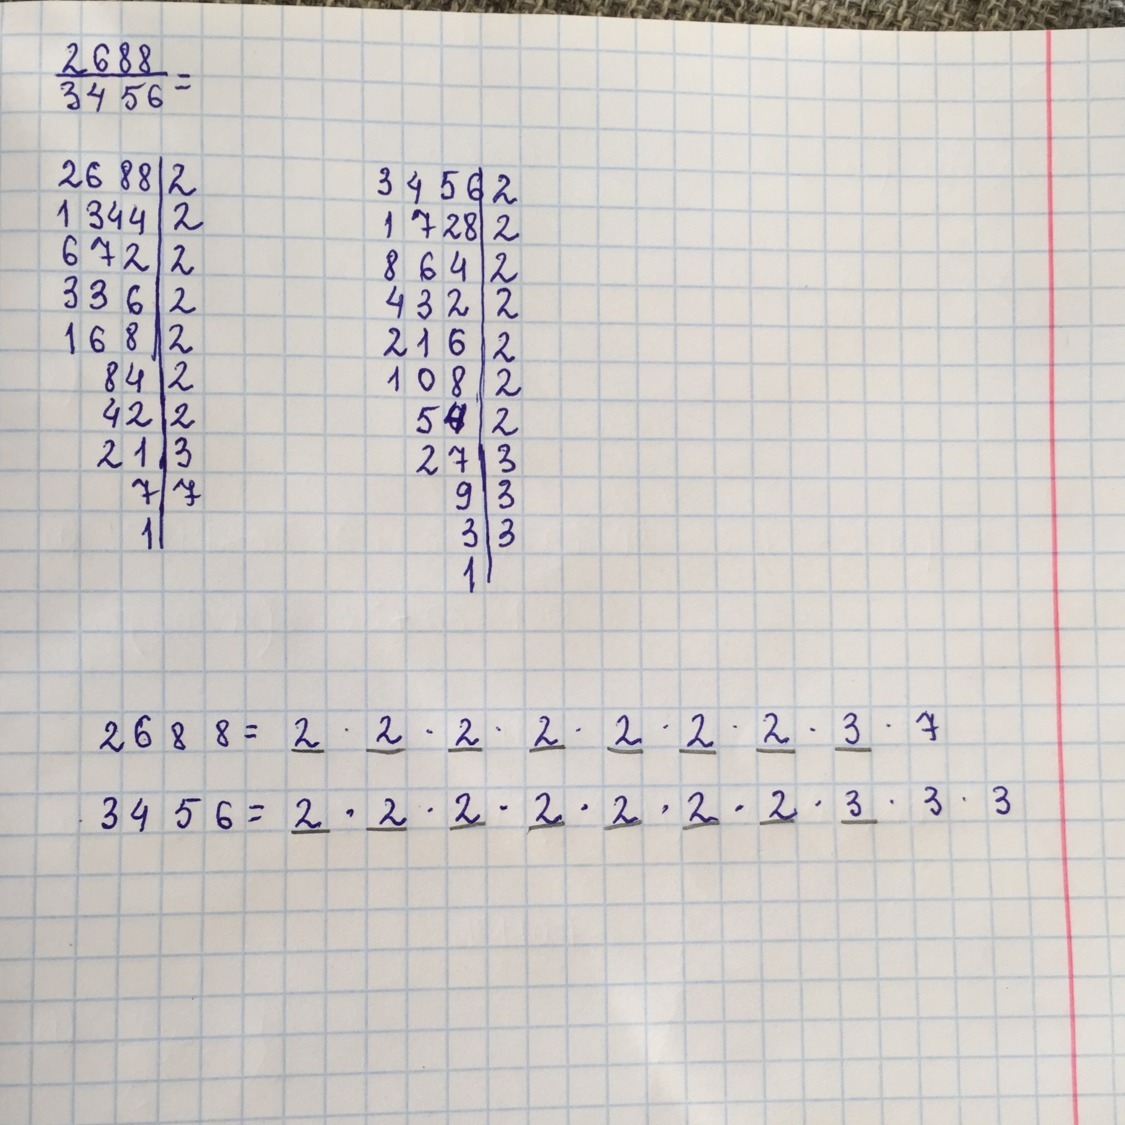 2688
3456 =
2688 | 2
1344 | 2
672 | 2
336 | 2
168 | 2
84 | 2
42 | 2
21 | 3
7 | 7
1 |
3456 | 2
1728 | 2
864 | 2
432 | 2
216 | 2
108 | 2
54 | 2
27 | 3
9 | 3
3 | 3
1 |
2688 = 2 · 2 · 2 · 2 · 2 · 2 · 2 · 3 · 7
3456 = 2 · 2 · 2 · 2 · 2 · 2 · 2 · 3 · 3 · 3